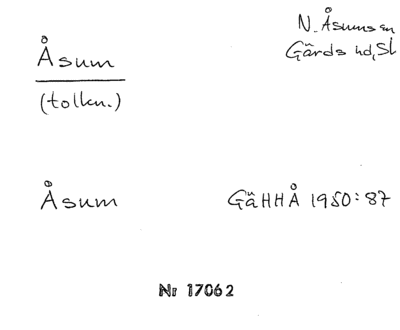 Åsum
(tolkn.)
N. Åsums sn
Gärds hd, Sk
Åsum
GäHHÅ 1950:87
Nr 17062